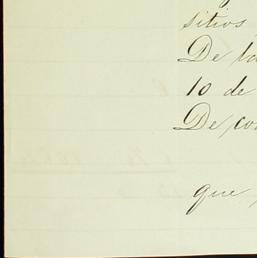 sitios
De la
10 de
De co
que